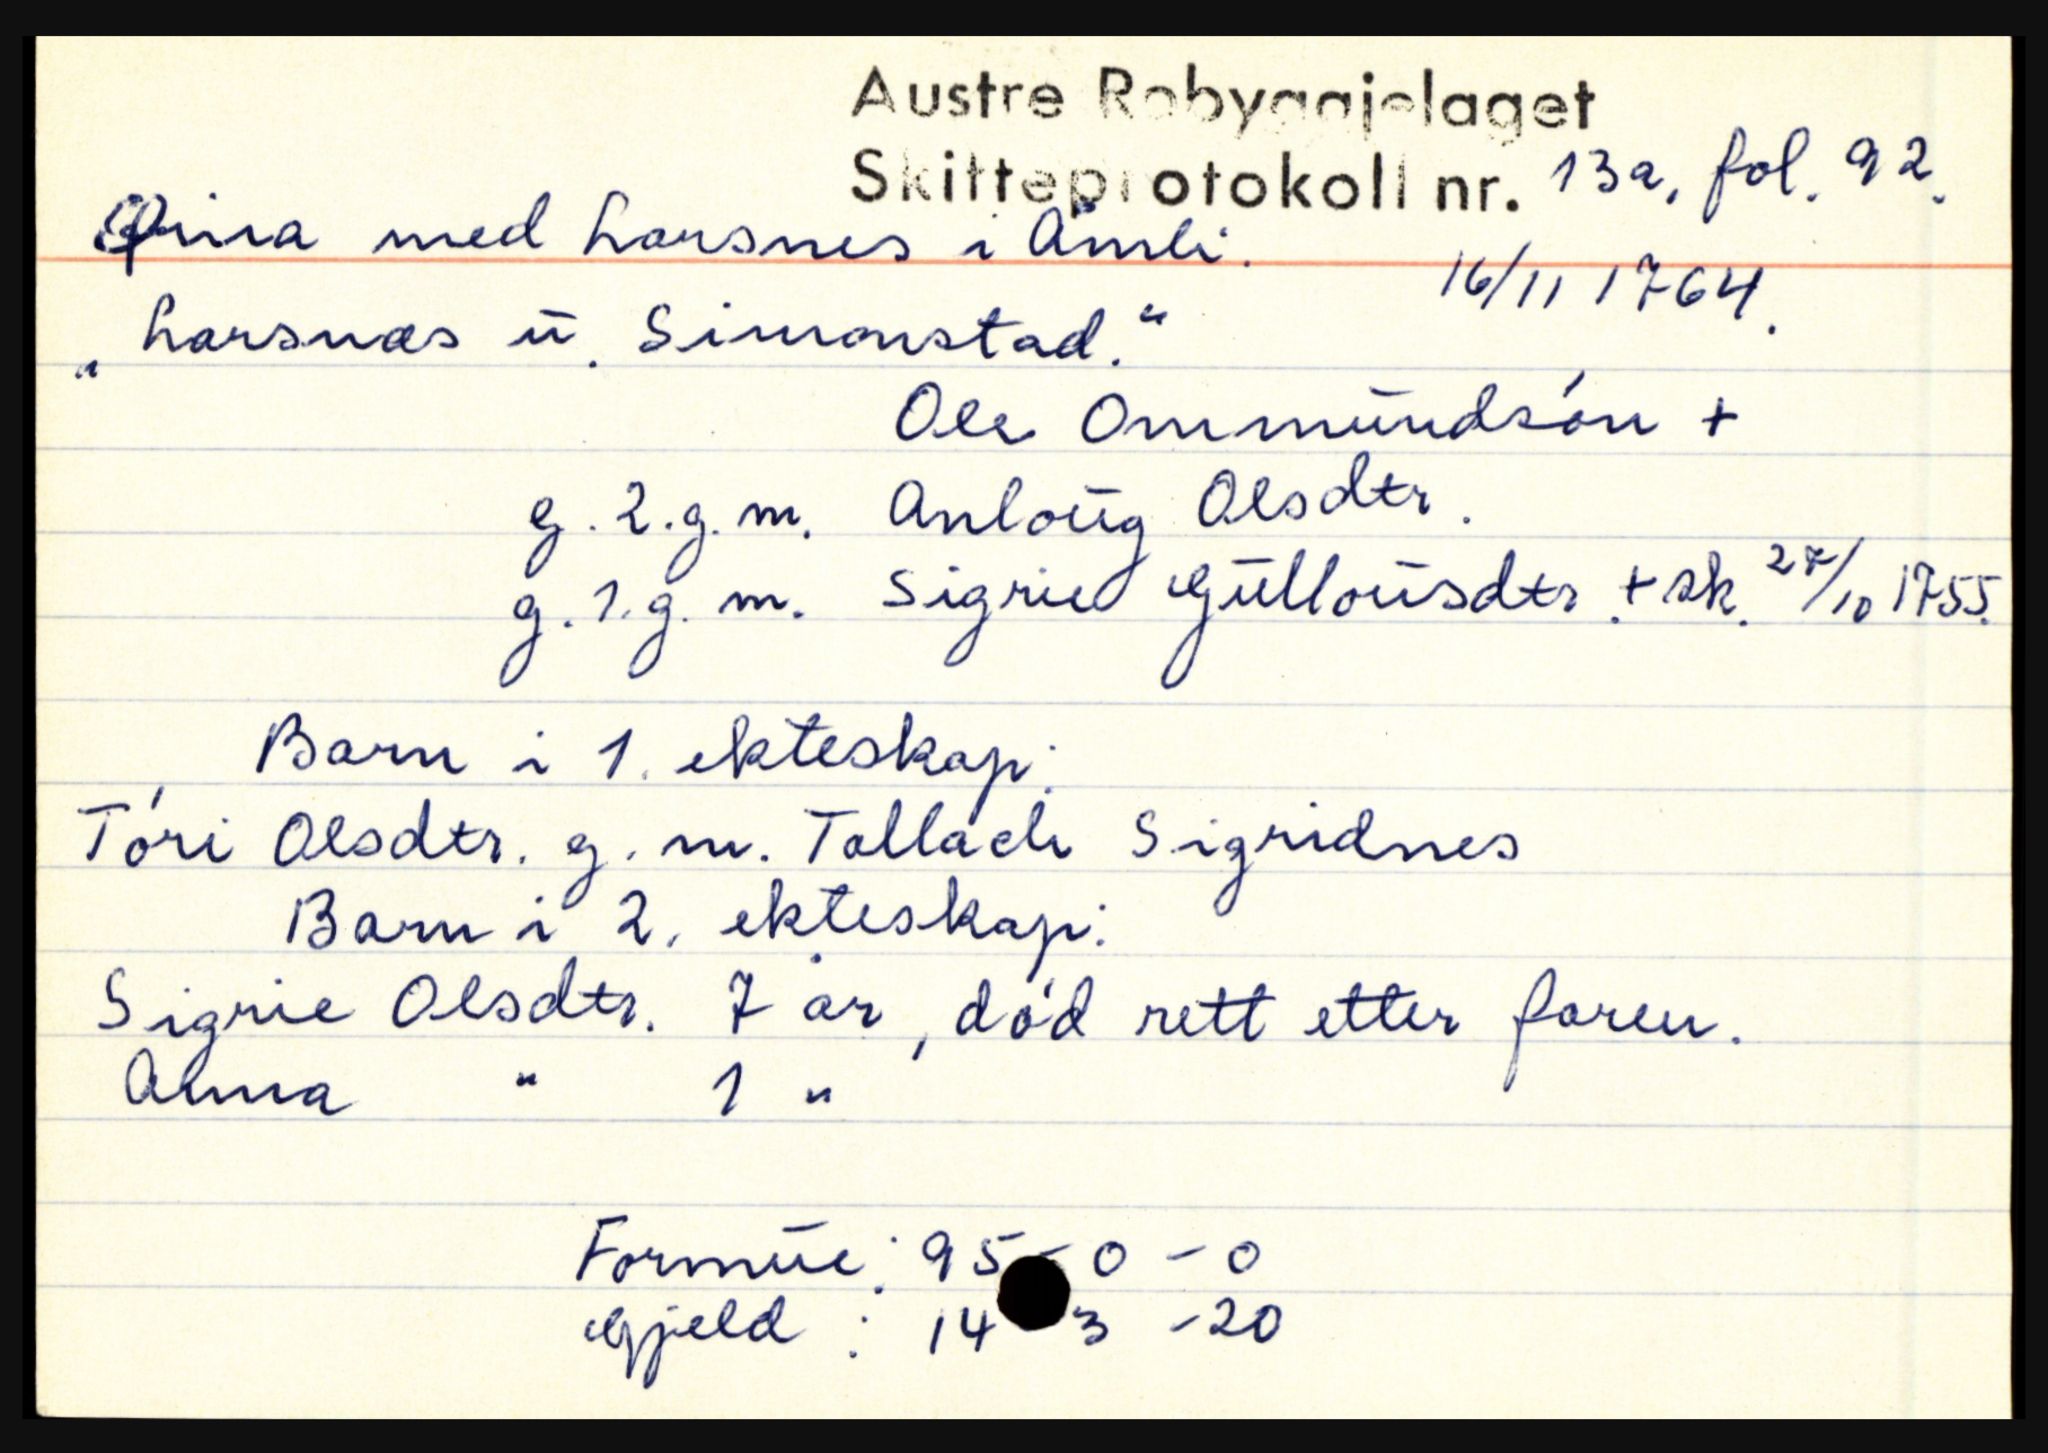 Austre Robyggjelaget
Skifteprotokoll nr. 13a, fol. 92.
med Larsnes i Åmli.
16/11 1764.
„Larsnæs u. Simonstad.“
Ole Ommundsón +
g. 2. g. m. Anloug Olsdtr.
g. 1. g. m. Sigrie Gulloúsdtr. + sk. 27/10 1755.
Barn i 1. ekteskap:
Tóri Olsdtr. g. m. Tallach Sigridnes
Barn i 2. ekteskap:
Sigrie Olsdtr. 7 år, dód rett etter faren.
Anna " 1 "
Formue: 95 - 0 - 0
Gjeld : 14 3 - 20